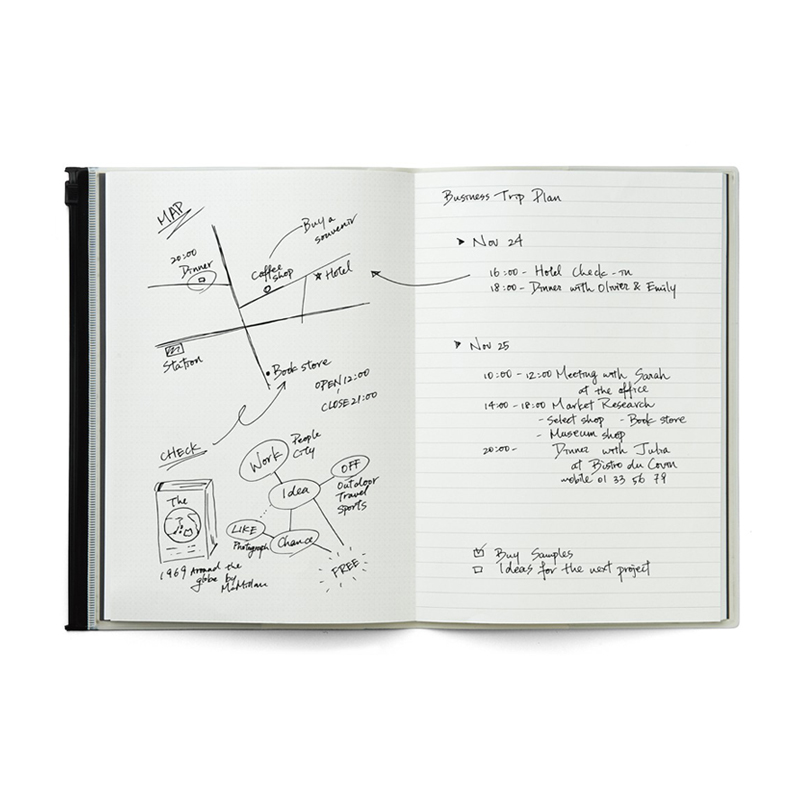 MAP
20:00
Dinner
Buy a
souvenir
Coffee
shop
Hotel
Station
Book store
OPEN 12:00
CLOSE 21:00
CHECK
The
1969 Around the
globe by
Work
People
City
Idea
OFF
Outdoor
Travel
Sports
LIKE
Photograph
Chance
FREE
Business Trip Plan
Nov 24
16:00 - Hotel Check-in
18:00 - Dinner with Olivier & Emily
Nov 25
10:00 - 12:00 Meeting with Sarah
at the office
14:00 - 18:00 Market Research
- Select shop - Book store
- Museum shop
20:00 - Dinner with Julia
at Bistro du
mobile 01 33 56 79
Buy Samples
Ideas for the next project